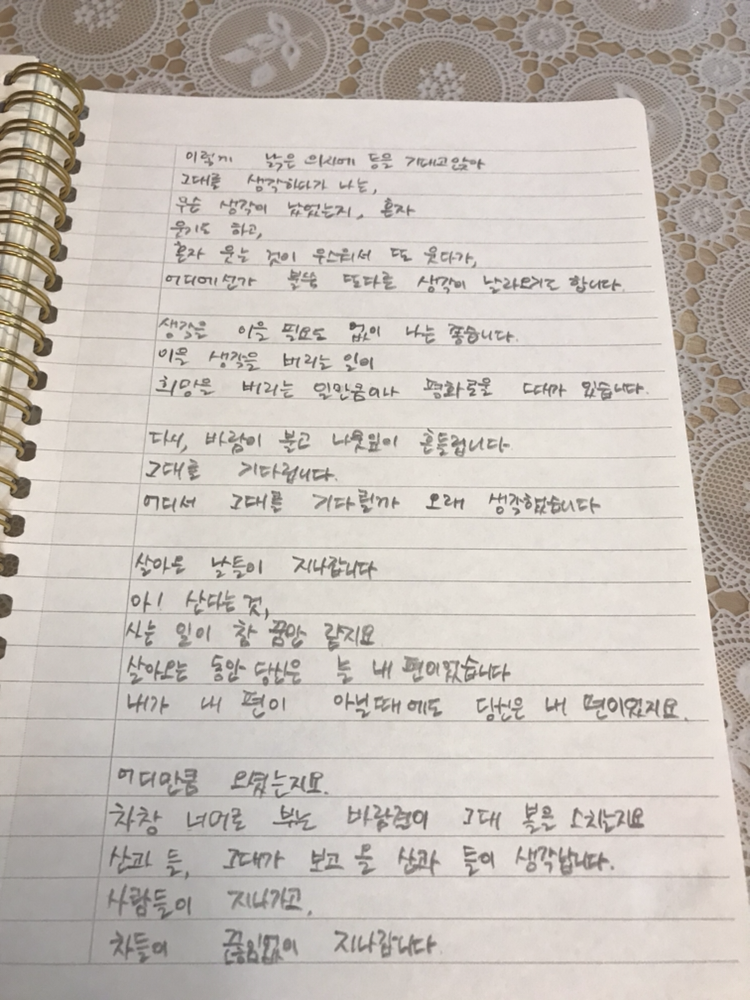 이렇게 낡은 의자에 등을 기대고 앉아
그대를 생각하다가 나는,
무슨 생각이 났었는지, 혼자
웃기도 하고,
혼자 웃는 것이 우스워서 또 웃다가,
어디에선가 불쑥 또다른 생각이 날라오기도 합니다.
생각을 이을 필요도 없이 나는 좋습니다.
이을 생각을 버리는 일이
희망을 버리는 일만큼이나 평화로울 때가 있습니다.
다시, 바람이 불고 나뭇잎이 흔들립니다
그대를 기다립니다.
어디서 그대를 기다릴까 오래 생각했습니다
살아온 날들이 지나갑니다
아! 산다는 것,
사는 일이 참 꿈만 같지요
살아오는 동안 당신은 늘 내 편이었습니다
내가 내 편이 아닐때에도 당신은 내 편이었지요.
어디만큼 오셨는지요.
차창 너머로 부는 바람결이 그대 볼을 스치는지요
산과 들, 그대가 보고 올 산과 들이 생각납니다.
사람들이 지나가고,
차들이 끊임없이 지나갑니다